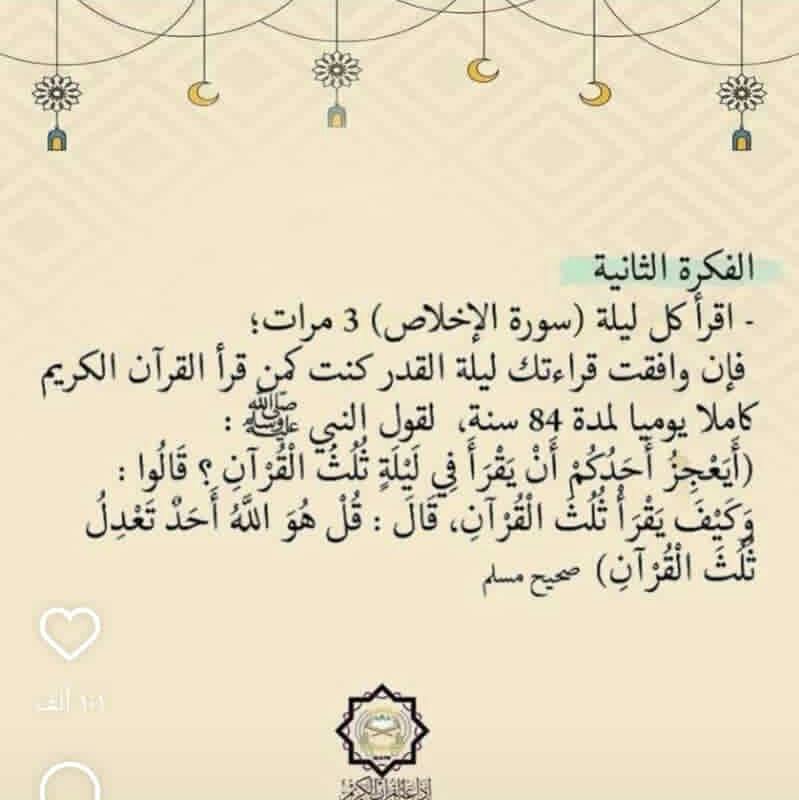 الفكرة الثانية
- اقرأ كل ليلة (سورة الإخلاص) 3 مرات؛
فإن وافقت قراءتك ليلة القدر كنت كمن قرأ القرآن الكريم
كاملا يوميا لمدة 84 سنة، لقول النبي ﷺ :
(أَيَعْجِزُ أَحَدُكُمْ أَنْ يَقْرَأَ فِي لَيْلَةٍ ثُلُثَ الْقُرْآنِ ؟ قَالُوا :
وَكَيْفَ يَقْرَأُ ثُلُثَ الْقُرْآنِ، قَالَ : قُلْ هُوَ اللَّهُ أَحَدٌ تَعْدِلُ
ثُلُثَ الْقُرْآنِ) صحيح مسلم
١٠١ ألف
إذاعة القرآن الكريم